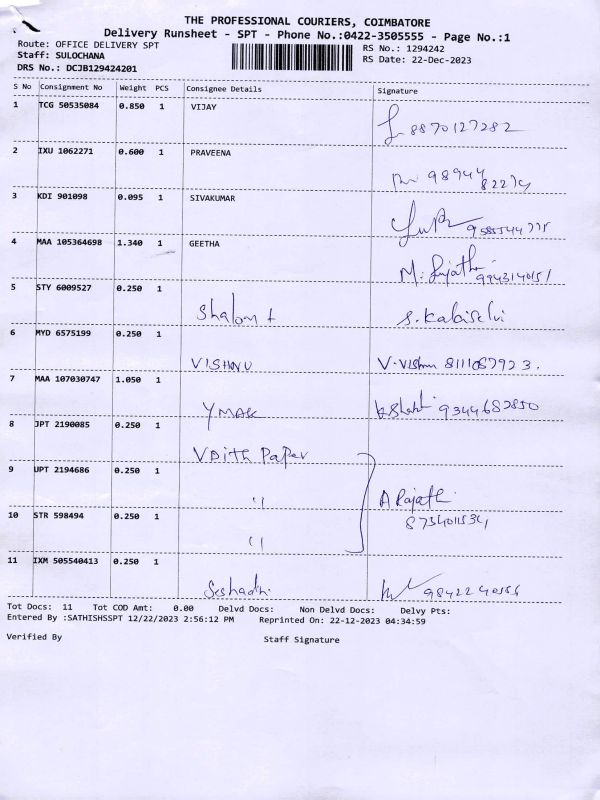 THE PROFESSIONAL COURIERS, COIMBATORE
Delivery Runsheet - SPT - Phone No.:0422-3505555 - Page No.:1
Route: OFFICE DELIVERY SPT
RS No.: 1294242
Staff: SULOCHANA
RS Date: 22-Dec-2023
DRS No.: DCJB129424201
S No Consignment No Weight PCS Consignee Details Signature
1 TCG 50535084 0.850 1 VIJAY
8870127282
2 IXU 1062271 0.600 1 PRAVEENA
98944
82274
3 KDI 901098 0.095 1 SIVAKUMAR
4 MAA 105364698 1.340 1 GEETHA
M.
5 STY 6009527 0.250 1
Shalom S. Kalaiselvi
6 MYD 6575199 0.250 1
VISHNU V-Vishnu 8111087923.
7 MAA 107030747 1.050 1
YMAK 9344682850
8 JPT 2190085 0.250 1
Paper
9 UPT 2194686 0.250 1
" A Rajath
10 STR 598494 0.250 1
"
11 IXM 505540413 0.250 1
Seshadhri
Tot Docs: 11 Tot COD Amt: 0.00 Delvd Docs: Non Delvd Docs: Delvy Pts:
Entered By :SATHISHSSPT 12/22/2023 2:56:12 PM Reprinted On: 22-12-2023 04:34:59
Verified By Staff Signature